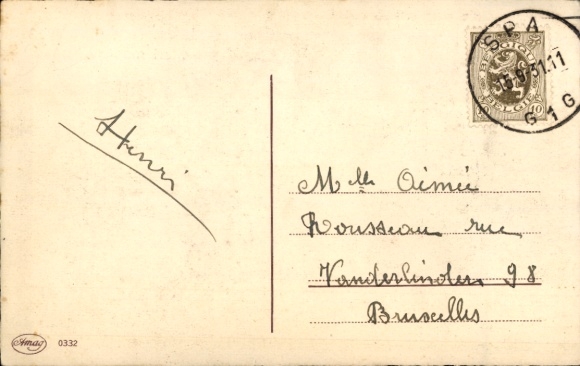 SPA
15.9.31.11
G 1 G
BELGIQUE
BELGIË
10
Henri
Mlle Aimée
Rousseau rue
Vanderlinden 98
Bruxelles
Amag 0332